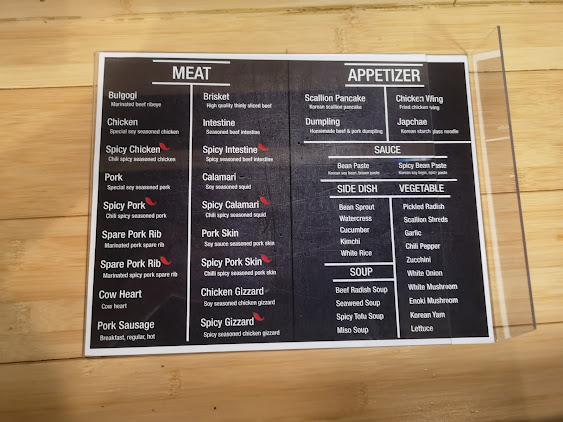 MEAT
Bulgogi
Marinated beef ribeye
Chicken
Special soy seasoned chicken
Spicy Chicken
Chili spicy seasoned chicken
Pork
Special soy seasoned pork
Spicy Pork
Chili spicy seasoned pork
Spare Pork Rib
Marinated pork spare rib
Spare Pork Rib
Marinated spicy pork spare rib
Cow Heart
Cow heart
Pork Sausage
Breakfast, regular, hot
Brisket
High quality thinly sliced beef
Intestine
Seasoned beef intestine
Spicy Intestine
Spicy seasoned beef intestine
Calamari
Soy seasoned squid
Spicy Calamari
Chili seasoned squid
Pork Skin
Soy sauce seasoned pork skin
Spicy Pork Skin
Chili spicy seasoned pork skin
Chicken Gizzard
Soy seasoned chicken gizzard
Spicy Gizzard
Spicy seasoned chicken gizzard
APPETIZER
Scallion Pancake
Korean scallion pancake
Chicken Wing
Fried chicken wing
Dumpling
Homemade beef & pork dumpling
Japchae
Korean starch glass noodle
SAUCE
Bean Paste
Korean soy bean, brown paste
Spicy Bean Paste
Korean soy bean, spicy paste
SIDE DISH
Bean Sprout
Watercress
Cucumber
Kimchi
White Rice
SOUP
Beef Radish Soup
Seaweed Soup
Spicy Tofu Soup
Miso Soup
VEGETABLE
Pickled Radish
Scallion Shreds
Garlic
Chili Pepper
Zucchini
White Onion
White Mushroom
Enoki Mushroom
Korean Yam
Lettuce